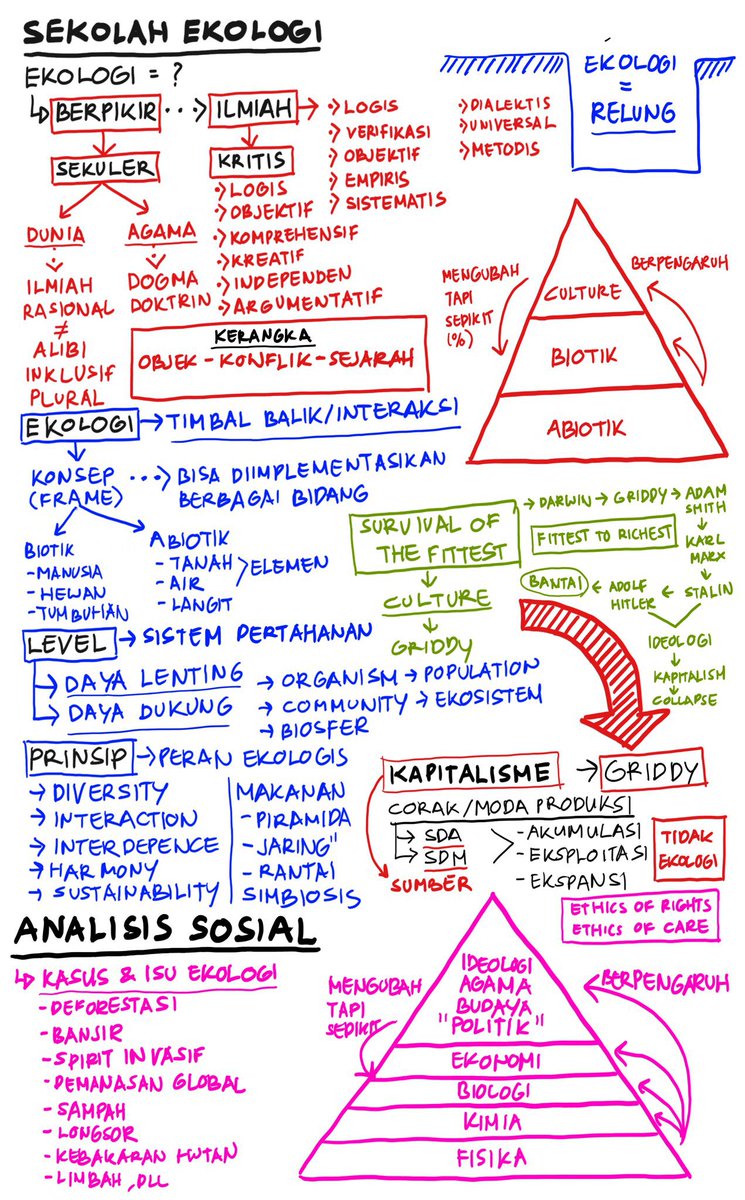 SEKOLAH EKOLOGI
EKOLOGI = ?
↳ BERPIKIR ···> ILMIAH →
·> LOGIS
·> VERIFIKASI
·> OBJEKTIF
·> EMPIRIS
·> SISTEMATIS
·> DIALEKTIS
·> UNIVERSAL
·> METODIS
EKOLOGI
=
RELUNG
SEKULER
DUNIA
ILMIAH
RASIONAL
≠
ALIBI
INKLUSIF
PLURAL
AGAMA
DOGMA
DOKTRIN
KRITIS
·> LOGIS
·> OBJEKTIF
·> KOMPREHENSIF
·> KREATIF
·> INDEPENDEN
·> ARGUMENTATIF
KERANGKA
OBJEK - KONFLIK - SEJARAH
MENGUBAH
TAPI
SEDIKIT
(%)
BERPENGARUH
CULTURE
BIOTIK
ABIOTIK
EKOLOGI → TIMBAL BALIK/INTERAKSI
KONSEP
(FRAME)
···> BISA DIIMPLEMENTASIKAN
BERBAGAI BIDANG
BIOTIK
- MANUSIA
- HEWAN
- TUMBUHAN
ABIOTIK
- TANAH
- AIR
- LANGIT
> ELEMEN
SURVIVAL OF
THE FITTEST
CULTURE
GRIDDY
→ DARWIN → GRIDDY → ADAM
SMITH
FITTEST TO RICHEST
KARL
MARX
STALIN
ADOLF
HITLER
BANTAI
IDEOLOGI
KAPITALISM
COLLAPSE
LEVEL → SISTEM PERTAHANAN
→ DAYA LENTING
→ DAYA DUKUNG
→ ORGANISM → POPULATION
→ COMMUNITY → EKOSISTEM
→ BIOSFER
PRINSIP → PERAN EKOLOGIS
→ DIVERSITY
→ INTERACTION
→ INTERDEPENCE
→ HARMONY
→ SUSTAINABILITY
MAKANAN
- PIRAMIDA
- JARING"
- RANTAI
SIMBIOSIS
KAPITALISME → GRIDDY
CORAK/MODA PRODUKSI
→ SDA
→ SDM
SUMBER
- AKUMULASI
- EKSPLOITASI
- EKSPANSI
TIDAK
EKOLOGI
ETHICS OF RIGHTS
ETHICS OF CARE
ANALISIS SOSIAL
↳ KASUS & ISU EKOLOGI
- DEFORESTASI
- BANJIR
- SPIRIT INVASIF
- PEMANASAN GLOBAL
- SAMPAH
- LONGSOR
- KEBAKARAN HUTAN
- LIMBAH, DLL
MENGUBAH
TAPI
SEDIKIT
BERPENGARUH
IDEOLOGI
AGAMA
BUDAYA
"POLITIK"
EKONOMI
BIOLOGI
KIMIA
FISIKA